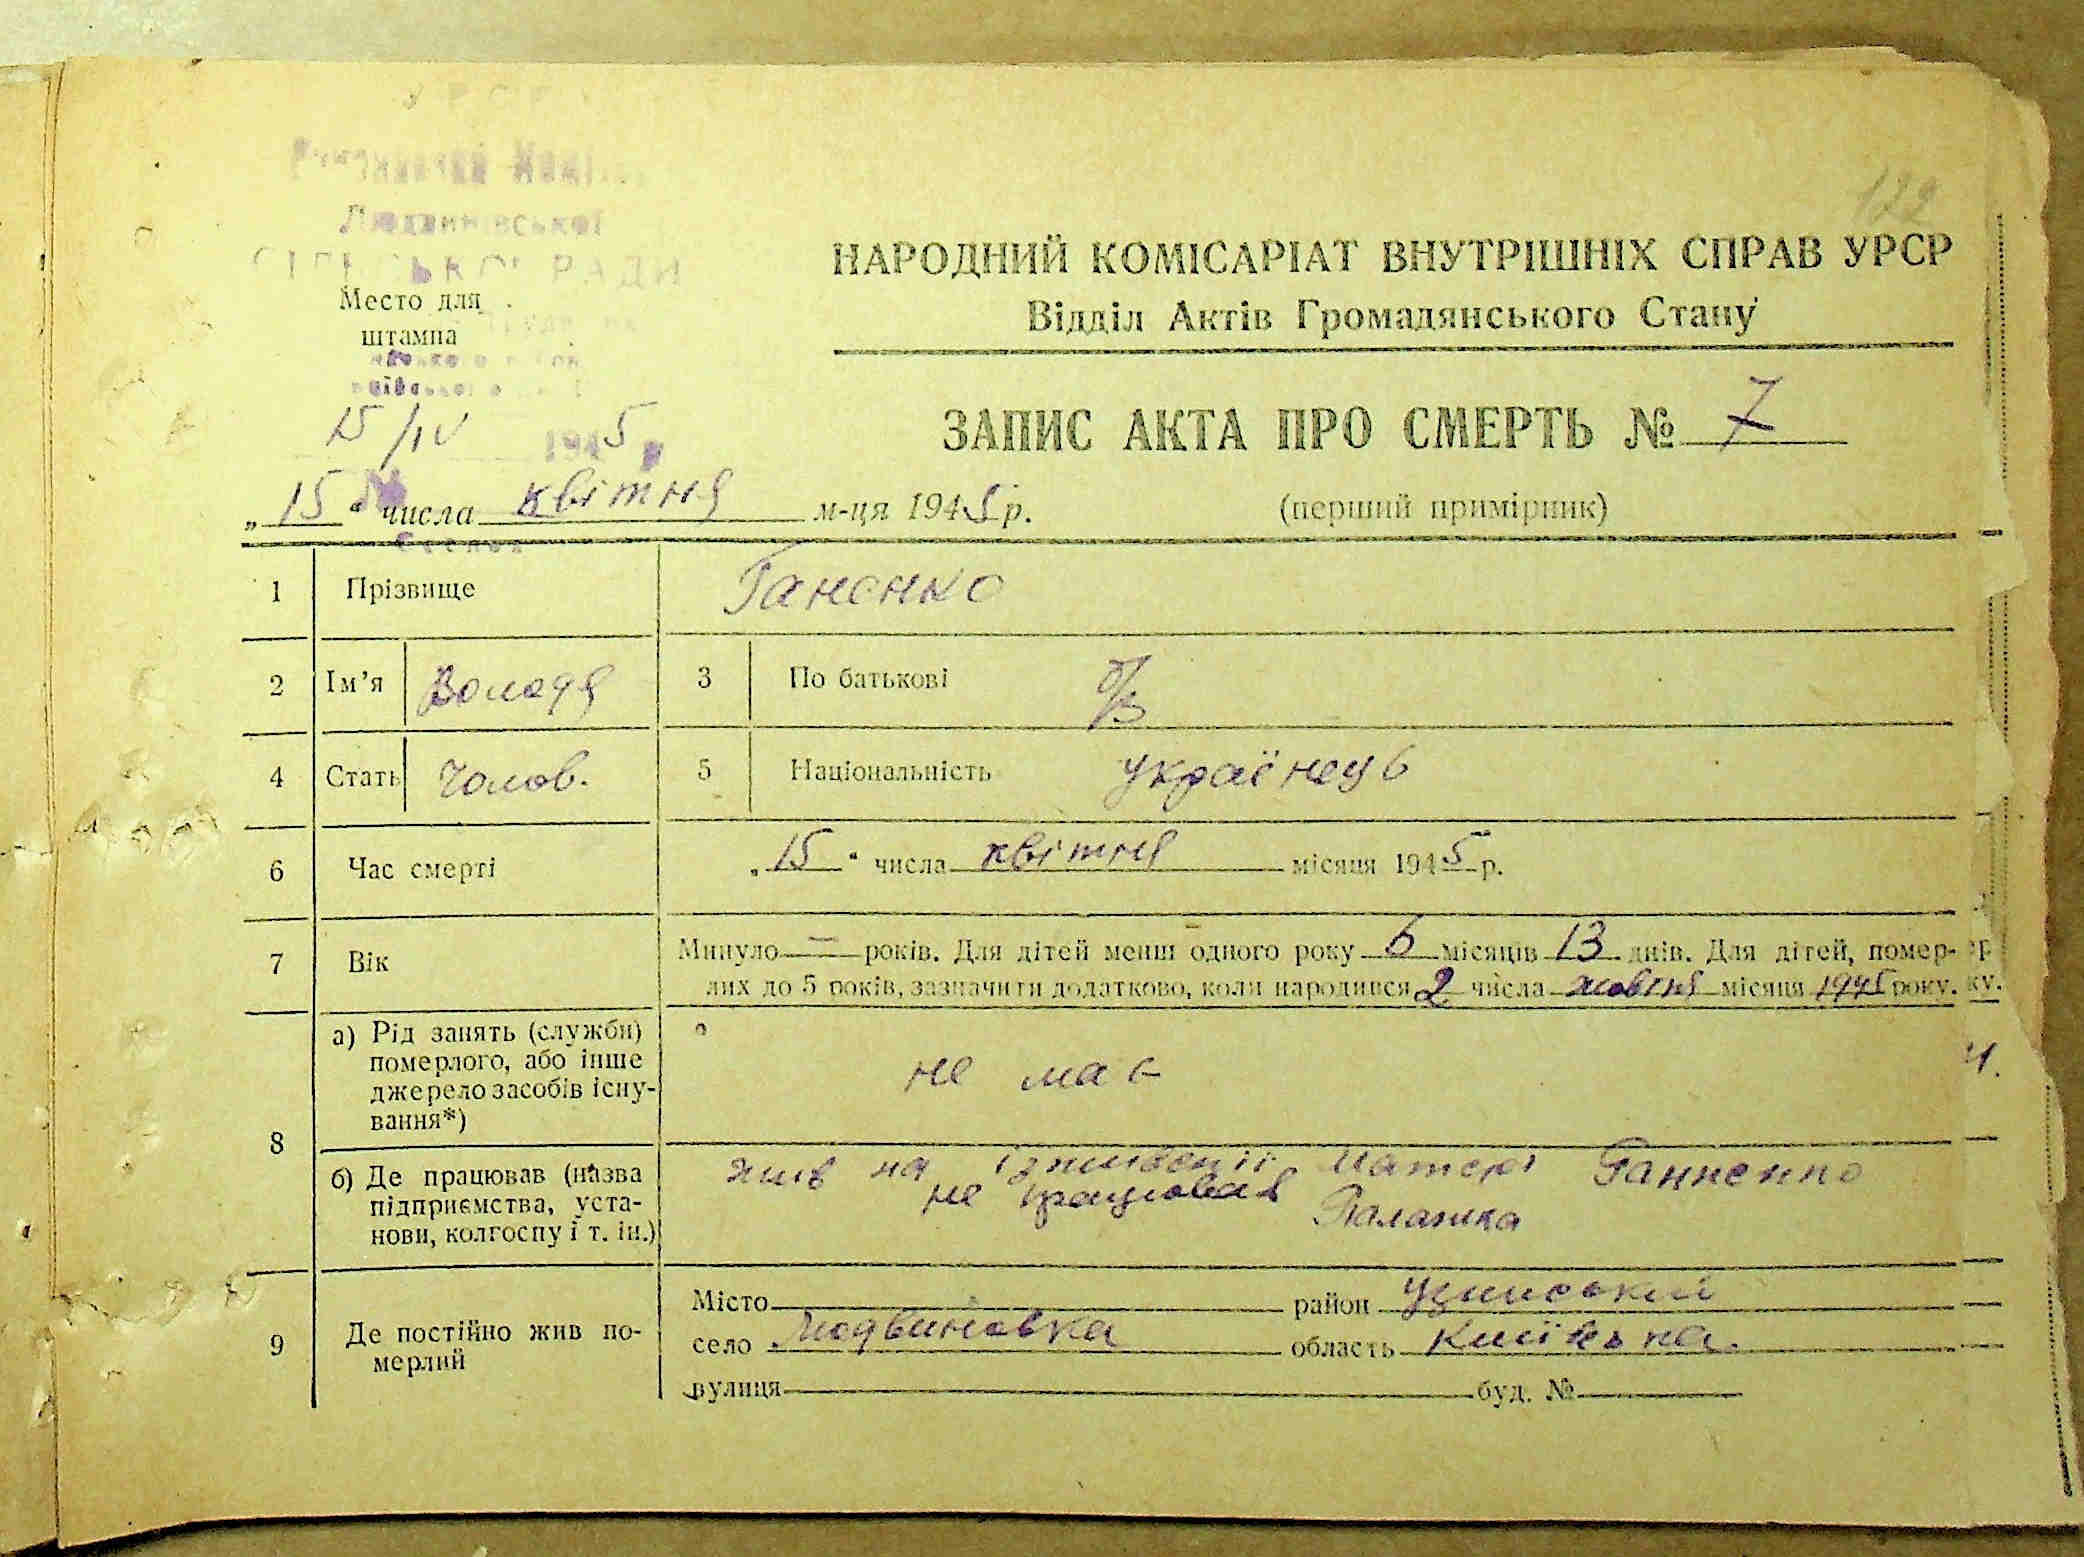 122
Людвинівської
СІЛЬСЬКОЇ РАДИ
Место для
штампа
15/IV 1945
НАРОДНИЙ КОМІСАРІАТ ВНУТРІШНІХ СПРАВ УРСР
Відділ Актів Громадянського Стану
ЗАПИС АКТА ПРО СМЕРТЬ № 7
„15“ числа квітня м-ця 1945 р.
(перший примірник)
1 Прізвище Ганенко
2 Ім’я Володя 3 По батькові б/б
4 Стать Чолов. 5 Національність українець
6 Час смерті „15“ числа квітня місяця 1945 р.
7 Вік Минуло — років. Для дітей менш одного року 6 місяців 13 днів. Для дітей, помер-
лих до 5 років, зазначити додатково, коли народився 2 числа жовтня місяця 1945 року.
8 а) Рід занять (служби)
померлого, або інше
джерело засобів існу-
вання*)
не має
б) Де працював (назва
підприємства, уста-
нови, колгоспу і т. ін.)
жив на матері Ганненко
не працював Палажка
9 Де постійно жив по-
мерлий
Місто район Узинський
село Людвиновка область Київська.
вулиця буд. №